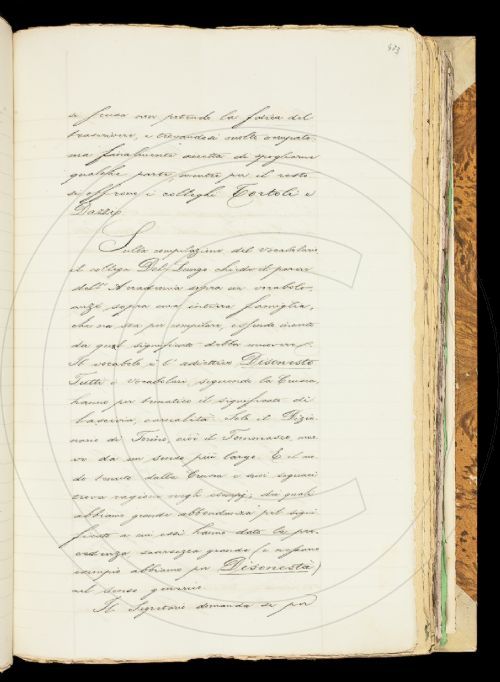 423
si scusa non potendo la fatica del
trascrivere, e trovandosi molto occupato,
ma finalmente accetta di spogliarne
qualche parte, mentre per il resto
si offrono i colleghi Tortoli e
Dazzi.
Sulla compilazione del Vocabolario
il collega Del Lungo chiede il parere
dell'Accademia sopra un vocabolo,
anzi sopra una intiera famiglia,
che va ora per compilare, essendo incerto
da qual significato debba muovere.
Il vocabolo è l'adiettivo Disonesto
Tutti i vocabolari, seguendo la Crusca,
hanno per tematico il significato di
lascivia, carnalità. Solo il Dizio
nario di Torino, cioè il Tommaseo, muo
ve da un senso più largo. E il me
todo tenuto dalla Crusca e suoi seguaci
trova ragione negli esempj, dei quali
abbiamo grande abbondanza pel signi
ficato a cui essi hanno dato la pre
cedenza, scarsezza grande (e nessuno
esempio abbiamo per Disonestà)
nel senso generico.
Il Segretario domanda se per